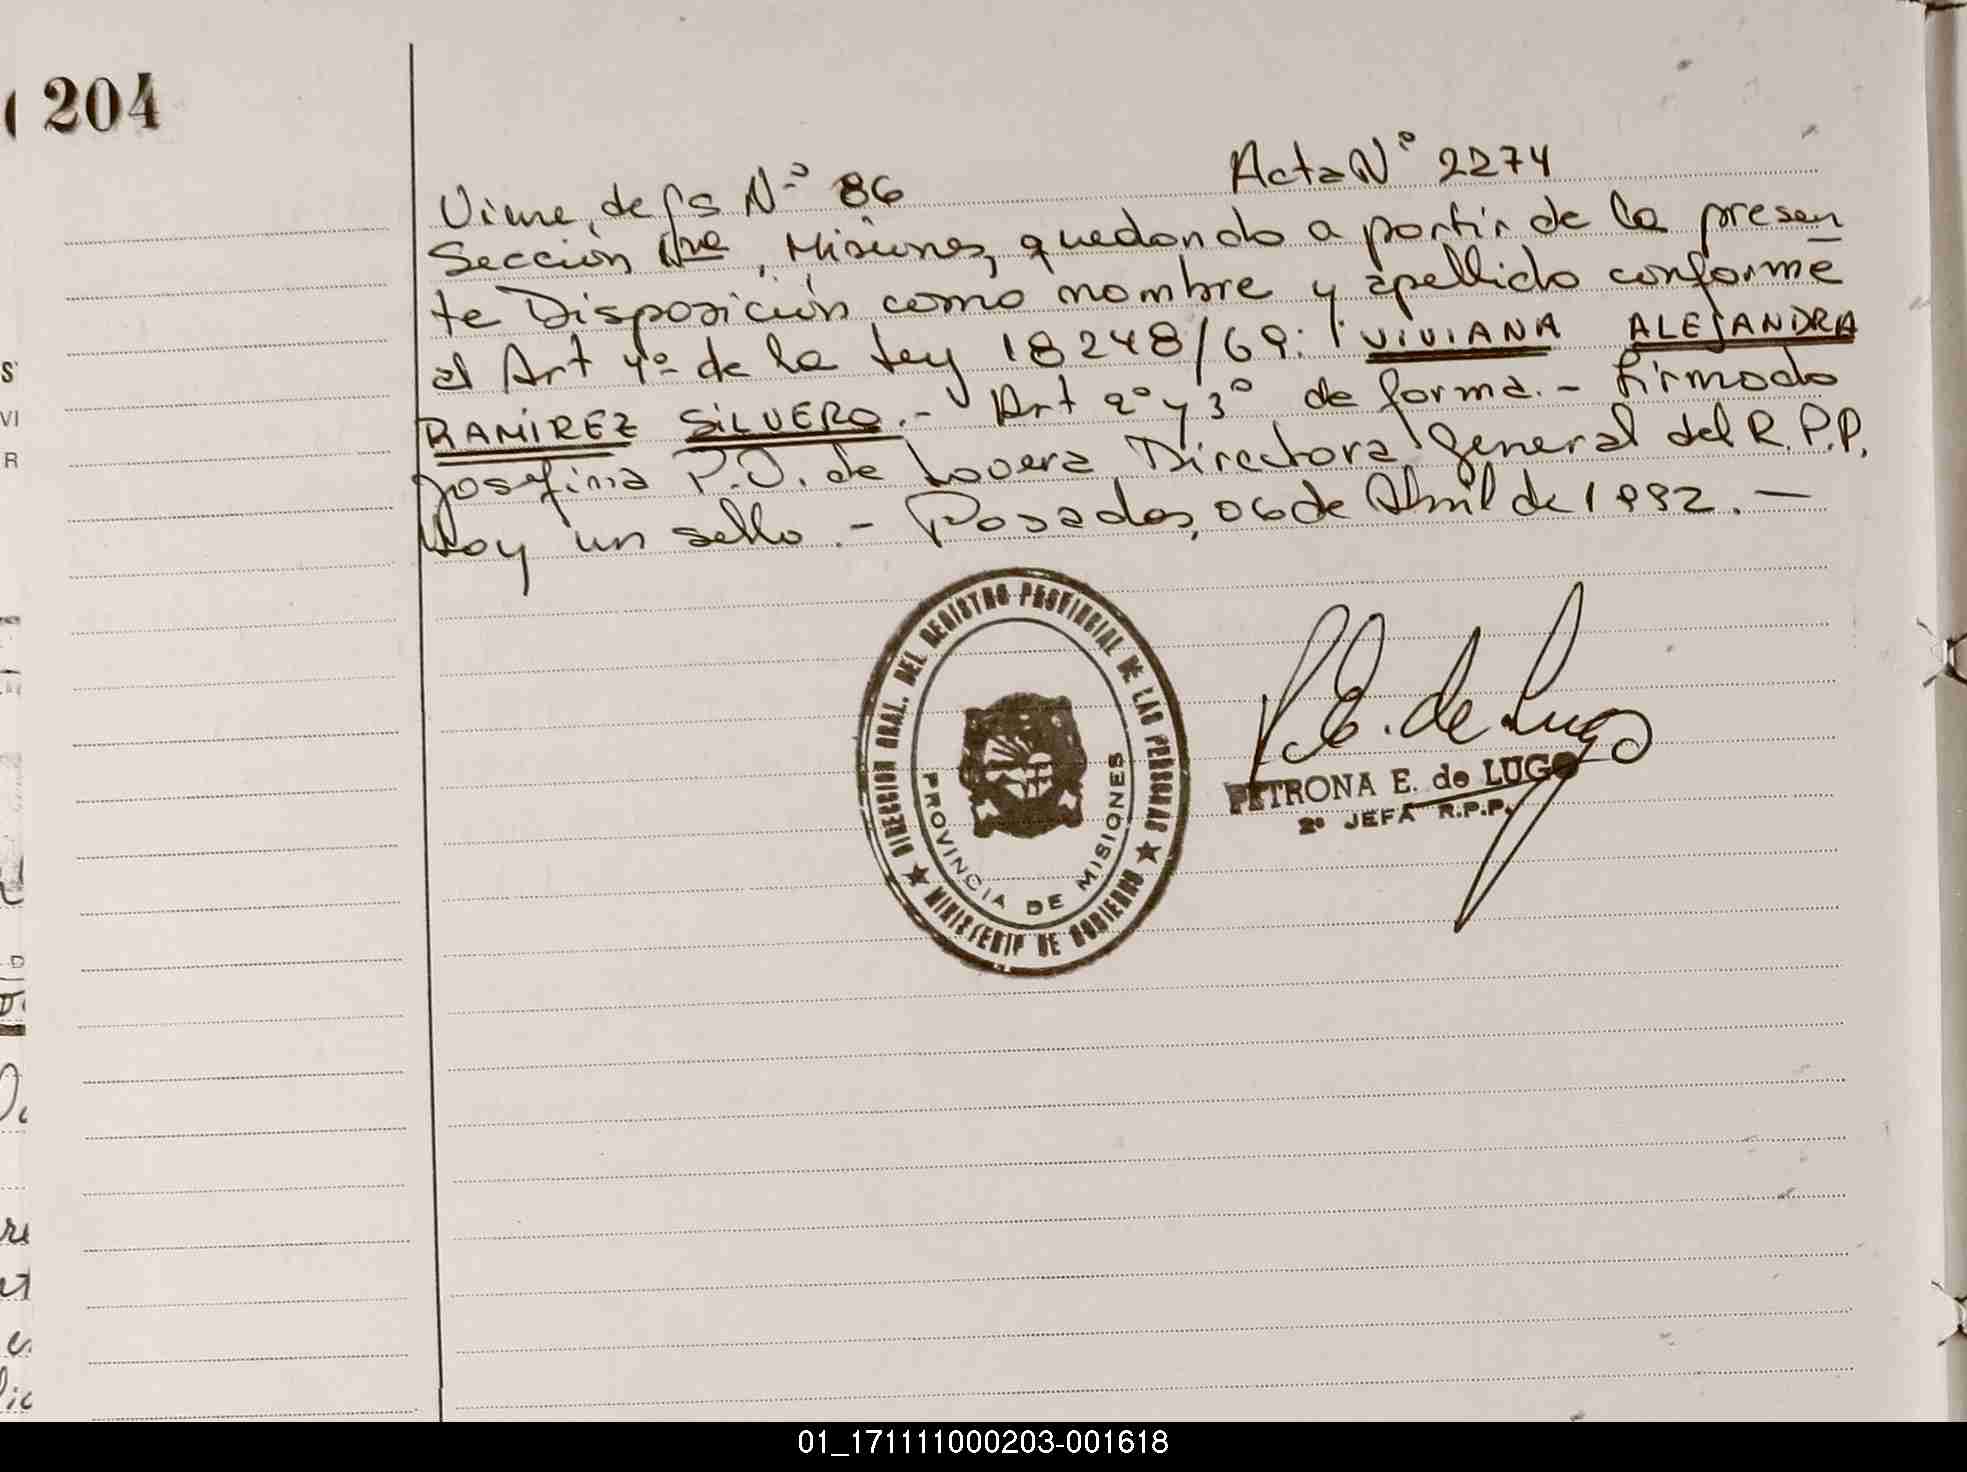 204
Viene de fs Nº 86 Acta Nº 2274
Sección 1ra, Misiones, quedando a partir de la presen
te Disposición como nombre y apellido conforme
al Art 4º de la Ley 18248/69: VIVIANA ALEJANDRA
RAMIREZ SILVERO.- Art 2º y 3º de forma.- Firmado
Josefina P.J. de Lovera Directora General del R.P.P.
Hay un sello.- Posadas, 06 de Abril de 1992.—
DIRECCION GRAL. DEL REGISTRO PROVINCIAL DE LAS PERSONAS
MINISTERIO DE GOBIERNO
PROVINCIA DE MISIONES
P.E. de Lugo
PETRONA E. de LUGO
2º JEFA R.P.P.
01_171111000203-001618